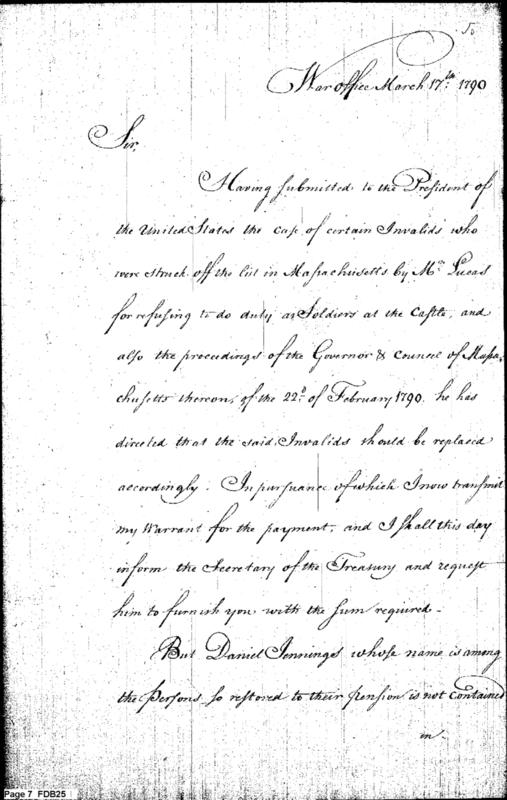 50
War office March 17th. 1790
Sir,
Having submitted to the President of
the United States the case of certain Invalids who
were struck off the list in Massachusetts by Mr. Lucas
for refusing to do duty as Soldiers at the Castle, and
also the proceedings of the Governor & Council of Massa,
chusetts thereon, of the 22d. of February 1790. he has
directed that the said Invalids should be replaced
accordingly. In pursuance of which I now transmit
my Warrant for the payment, and I shall this day
inform the Secretary of the Treasury and request
him to furnish you with the sum required -
But Daniel Jennings whose name is among
the persons so restored to their pension is not contained
in -
Page 7 FDB25